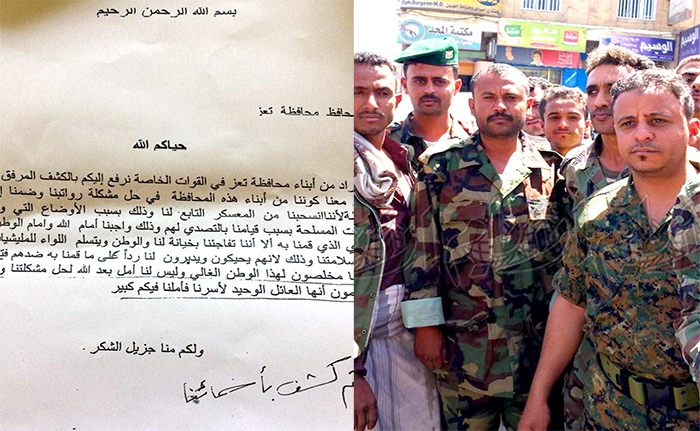 بسم الله الرحمن الرحيم
حافظ محافظة تعز
حياكم الله
راد من أبناء محافظة تعز في القوات الخاصة نرفع إليكم بالكشف المرفق
معنا كوننا من أبناء هذه المحافظة في حل مشكلة رواتبنا وضمنا إ
لأننا انسحبنا من المعسكر التابع لنا وذلك بسبب الأوضاع التي و
ت المسلحة بسبب قيامنا بالتصدي لهم وذلك واجبنا أمام الله وامام الوطن
ي الذي قمنا به ألا أننا تفاجئنا بخيانة لنا والوطن ويتسلم اللواء للمليشيا
سلامتنا وذلك لانهم يحيكون ويديرون لنا رداً على ما قمنا به ضدهم فتم
ا مخلصون لهذا الوطن الغالي وليس لنا أمل بعد الله لحل مشكلتنا و
مون أنها العائل الوحيد لأسرنا فأملنا فيكم كبير
ولكم منا جزيل الشكر
كشف
Oph.Surgeon-M.D
مكتبة المجد
الوسيم